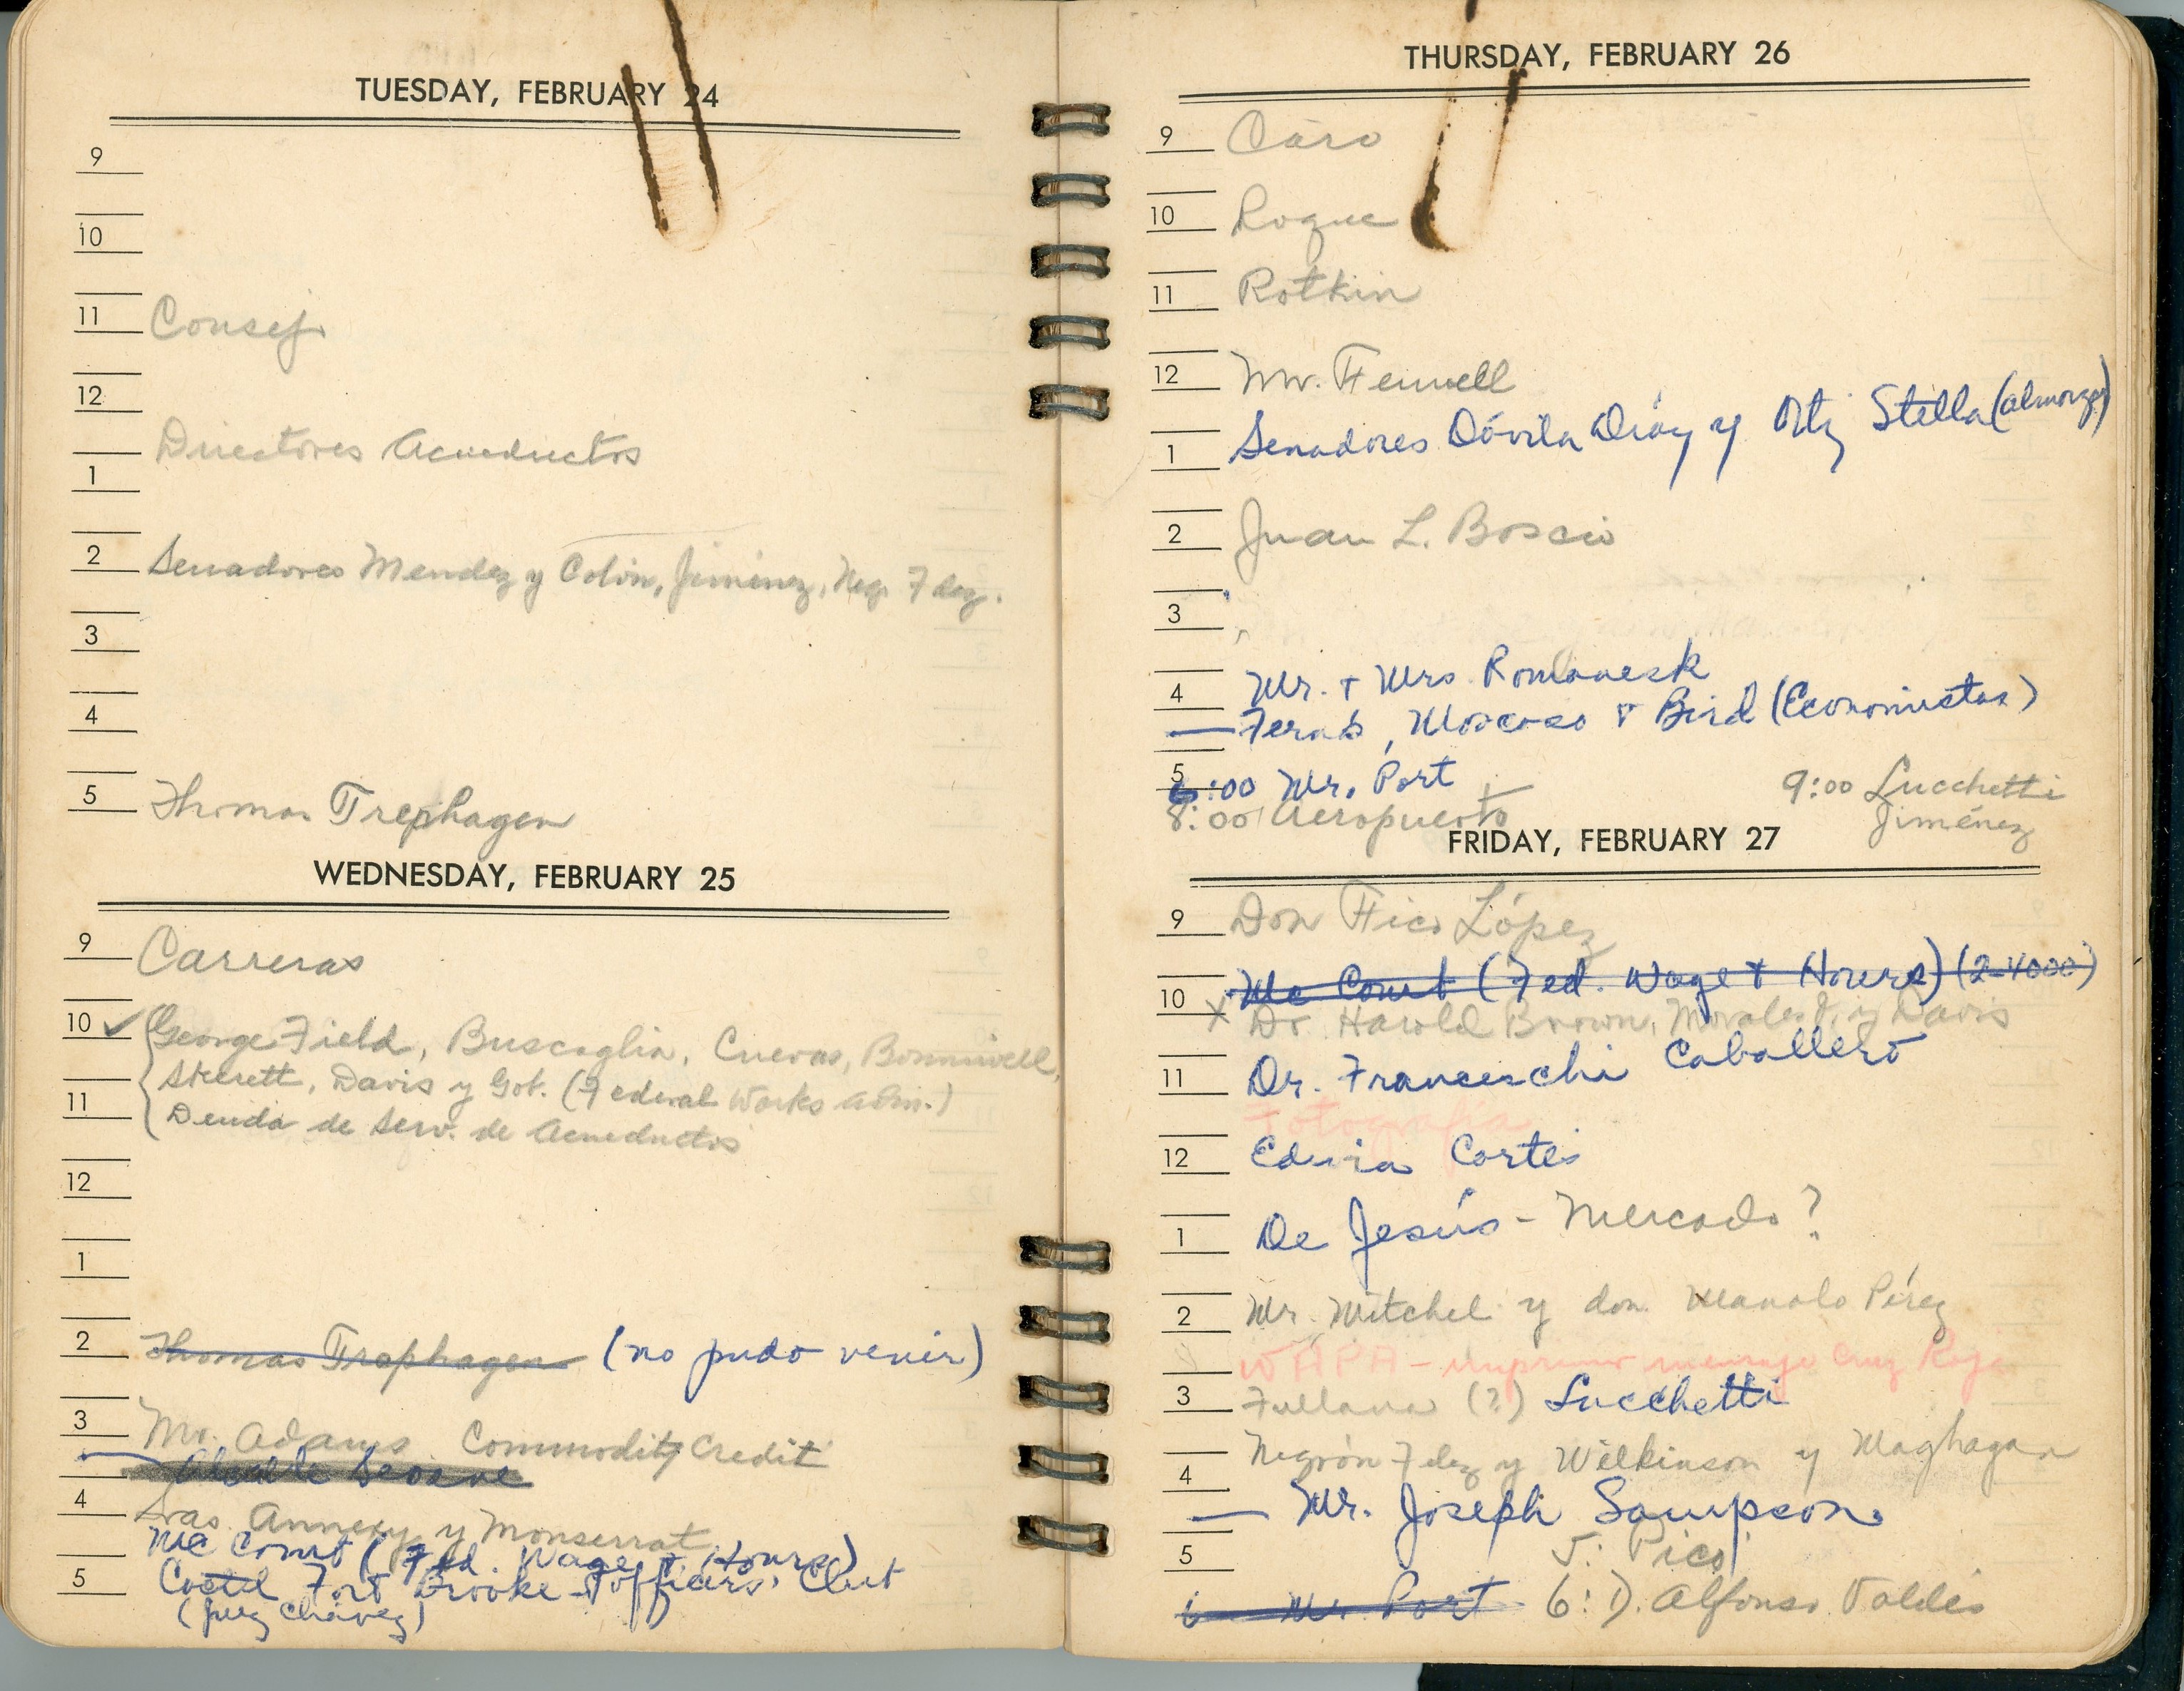 TUESDAY, FEBRUARY 24
9
10
11 Consejo
12
Directores Acueductos
1
2 Senadores Mendez y Colón, Jiménez, Neg. Fdez.
3
4
5 Thomas Trephagen
WEDNESDAY, FEBRUARY 25
9 Carreras
10 ✓ George Field, Buscaglia, Cuevas, Bonniwell,
Skerett, Davis y Gob. (Federal Works Adm.)
11
Deuda de Serv. de Acueductos
12
1
2 Thomas Trephagen (no pudo venir)
3 Mr. Adams Commodity Credit
Seoane
4 Sras. Annexy y Monserrat
Mc Comt (Fed. Wage & Hours)
5 Coctel Fort Brooke Officers' Club
(juez Chávez)
THURSDAY, FEBRUARY 26
9 Caro
10 Roque
11 Rotkin
12 Mr. Fennell
1 Senadores Dávila Díaz y Ortiz Stella (almorzar)
2 Juan L. Boscio
3
4 Mr. & Mrs Romanesk
— Fernós, Moscoso & Bird (Economistas)
5
6:00 Mr. Port
8:00 Aeropuerto
9:00 Lucchetti
Jiménez
FRIDAY, FEBRUARY 27
9 Don Fico López
10 Mc Comt (Fed. Wage & Hours) (2-4000)
X Dr. Harold Brown, Morales O. y Davis
11 Dr. Franceschi Caballero
Fotografía
12 Edwin Cortés
1 De Jesús - Mercado?
2 Mr. Mitchel y don Manolo Pérez
WAPA - imprimir mensaje Cruz Roja
3 Fullana (?) Lucchetti
Negrón Fdez y Wilkinson y Maghagan
4
— Mr. Joseph Sampson
5 5: Picó
6 Mr. Port 6: D. Alfonso Valdés